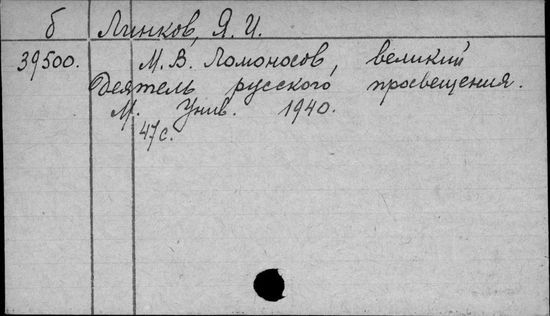 б Линков, Я. И.
39500. М. В. Ломоносов, великий
деятель русского просвещения.
М. Унив. 1940.
47с.